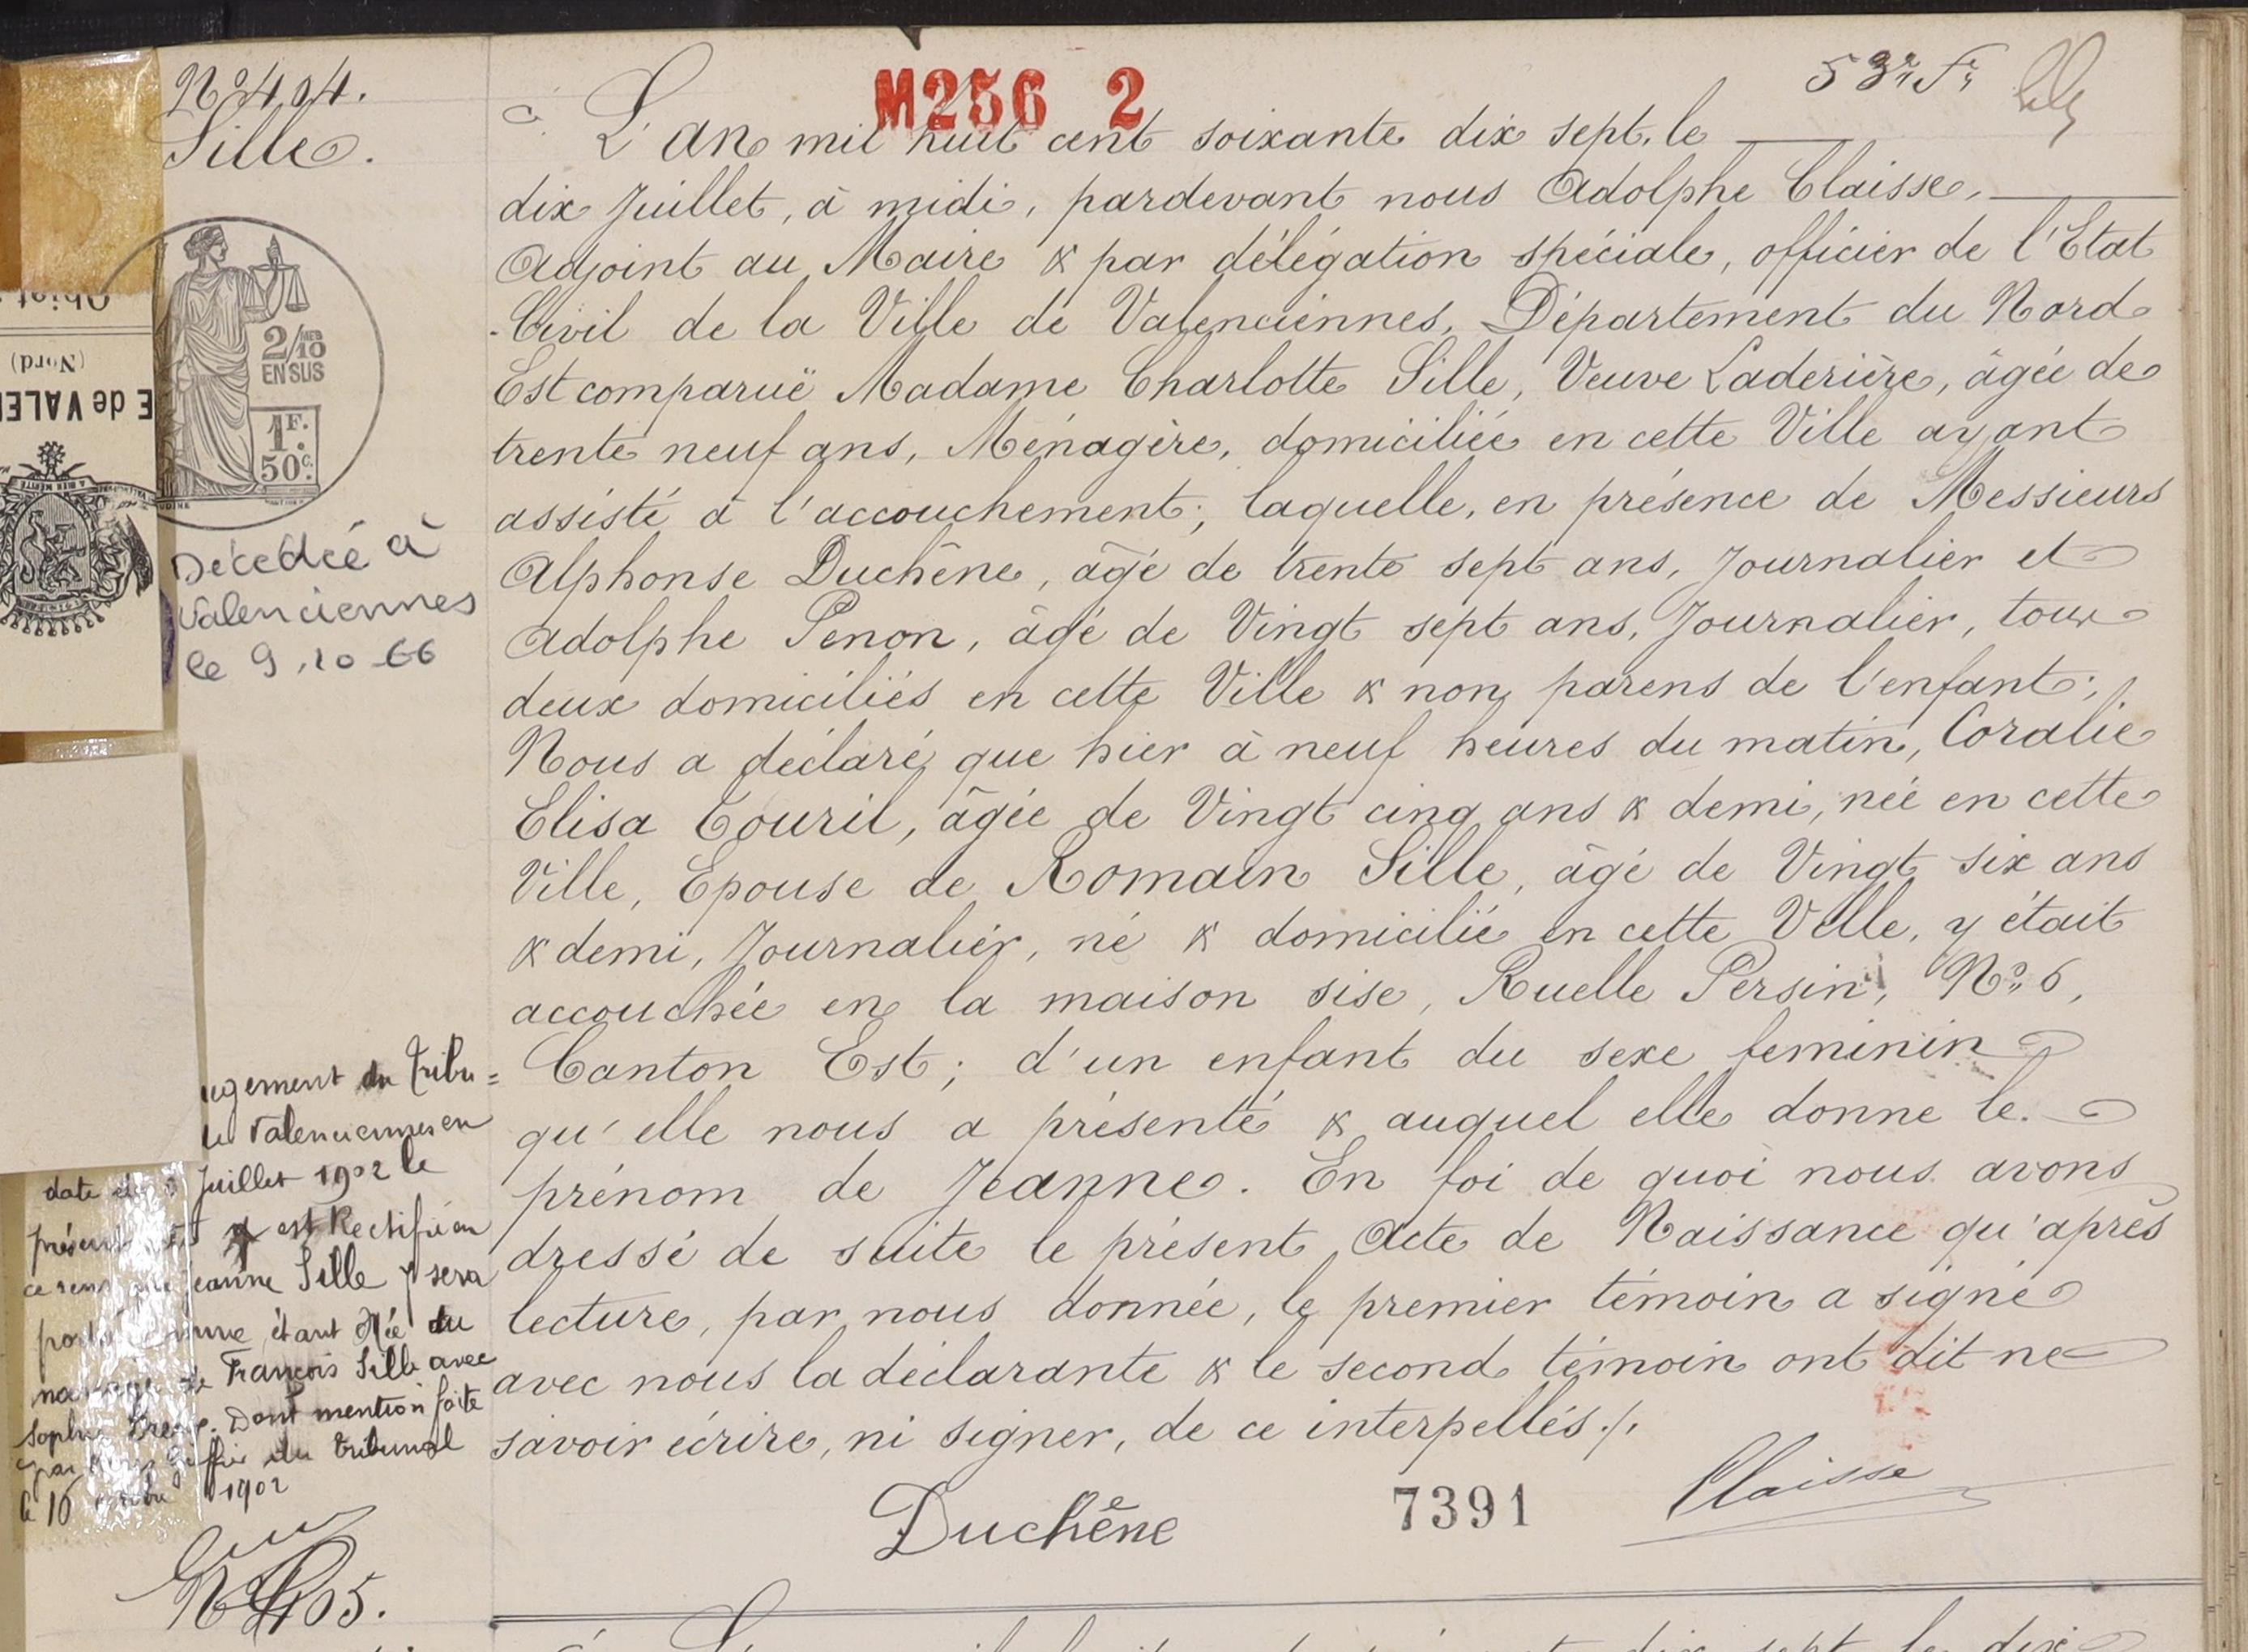 N° 404.
Sille.
M256 2
53e Ft
L'an mil huit cent soixante dix sept, le
dix Juillet, à midi, pardevant nous Adolphe Claisse,
Adjoint au Maire & par délégation spéciale, officier de l'Etat
Civil de la Ville de Valenciennes, Département du Nord
Est comparuë Madame Charlotte Sille, Veuve Laderière, âgée de
trente neuf ans, Ménagère, domiciliée en cette Ville ayant
assisté à l'accouchement; laquelle, en présence de Messieurs
Alphonse Duchêne, âgé de trente sept ans, Journalier et
Adolphe Penon, âgé de Vingt sept ans, Journalier, tous
deux domiciliés en cette Ville & non parens de l'enfant;
Nous a déclaré que hier à neuf heures du matin, Coralie
Elisa Touril, âgée de Vingt cinq ans & demi, née en cette
Ville, Epouse de Romain Sille, âgé de Vingt six ans
& demi, Journalier, né & domicilié en cette Ville, y était
accouchée en la maison sise, Ruelle Persin, N° 6,
Canton Est; d'un enfant du sexe feminin
qu'elle nous a présenté & auquel elle donne le
prénom de Jeanne. En foi de quoi nous avons
dressé de suite le présent Acte de Naissance qu'après
lecture, par nous donnée, le premier témoin a signé
avec nous la déclarante & le second témoin ont dit ne
savoir écrire, ni signer, de ce interpellés ./.
Duchêne
7391
Claisse
2/10 MES
EN SUS
1F.
50c.
Objet
(Nord)
E de VALE
Décédée à
Valenciennes
le 9.10.66
ugement du tribu=
Valenciennes en
date du Juillet 1902 le
est Rectifié en
ce sens que Jeanne Sille y sera
étant Née du
mariage de François Sille avec
Sophie Dont mention faite
par du tribunal
le 16 1902
N° 405.